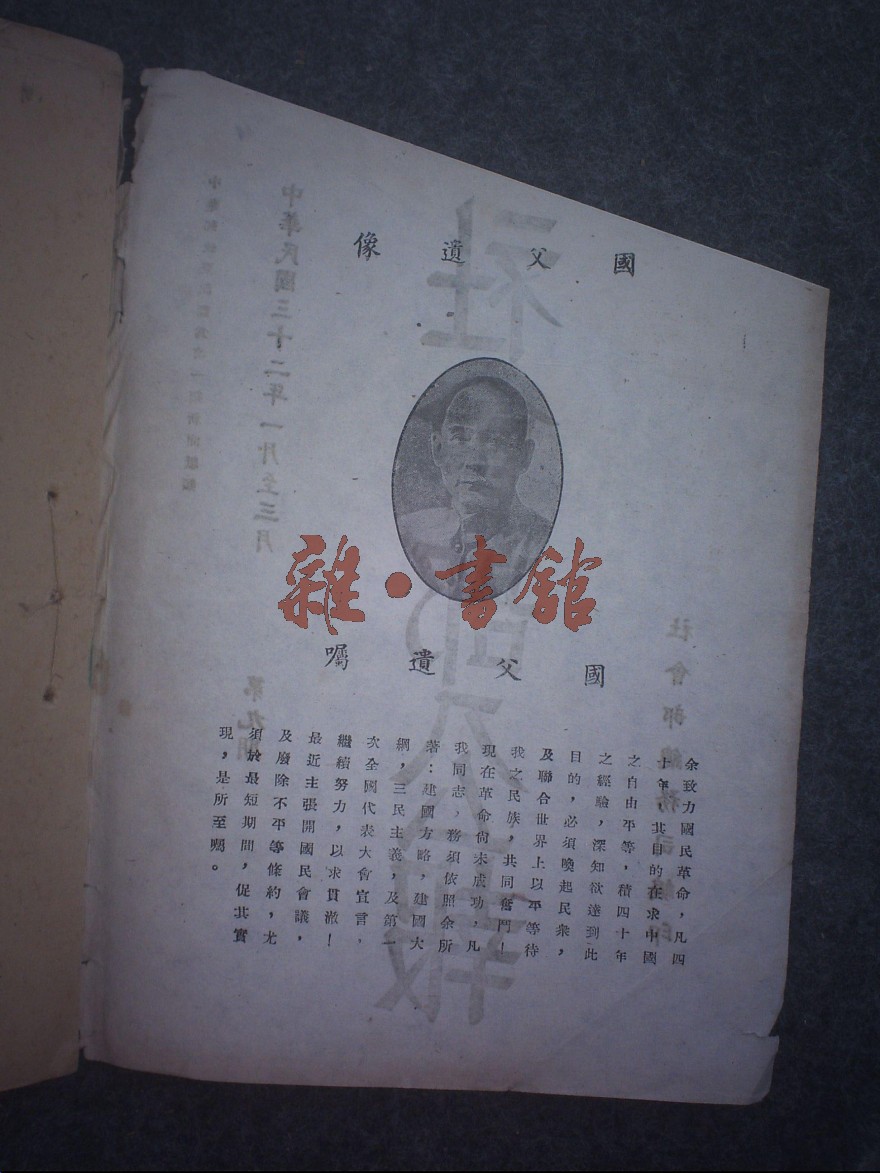 國父遺像
國父遺囑
余致力國民革命，凡四
十年，其目的在求中國
之自由平等，積四十年
之經驗，深知欲達到此
目的，必須喚起民衆，
及聯合世界上以平等待
我之民族，共同奮鬥！
現在革命尙未成功，凡
我同志，務須依照余所
著：建國方略，建國大
綱，三民主義，及第一
次全國代表大會宣言，
繼續努力，以求貫澈！
最近主張開國民會議，
及廢除不平等條約，尤
須於最短期間，促其實
現，是所至囑。
社會部總務司編印
中華民國三十二年一月至三月
第九期
雜·書館